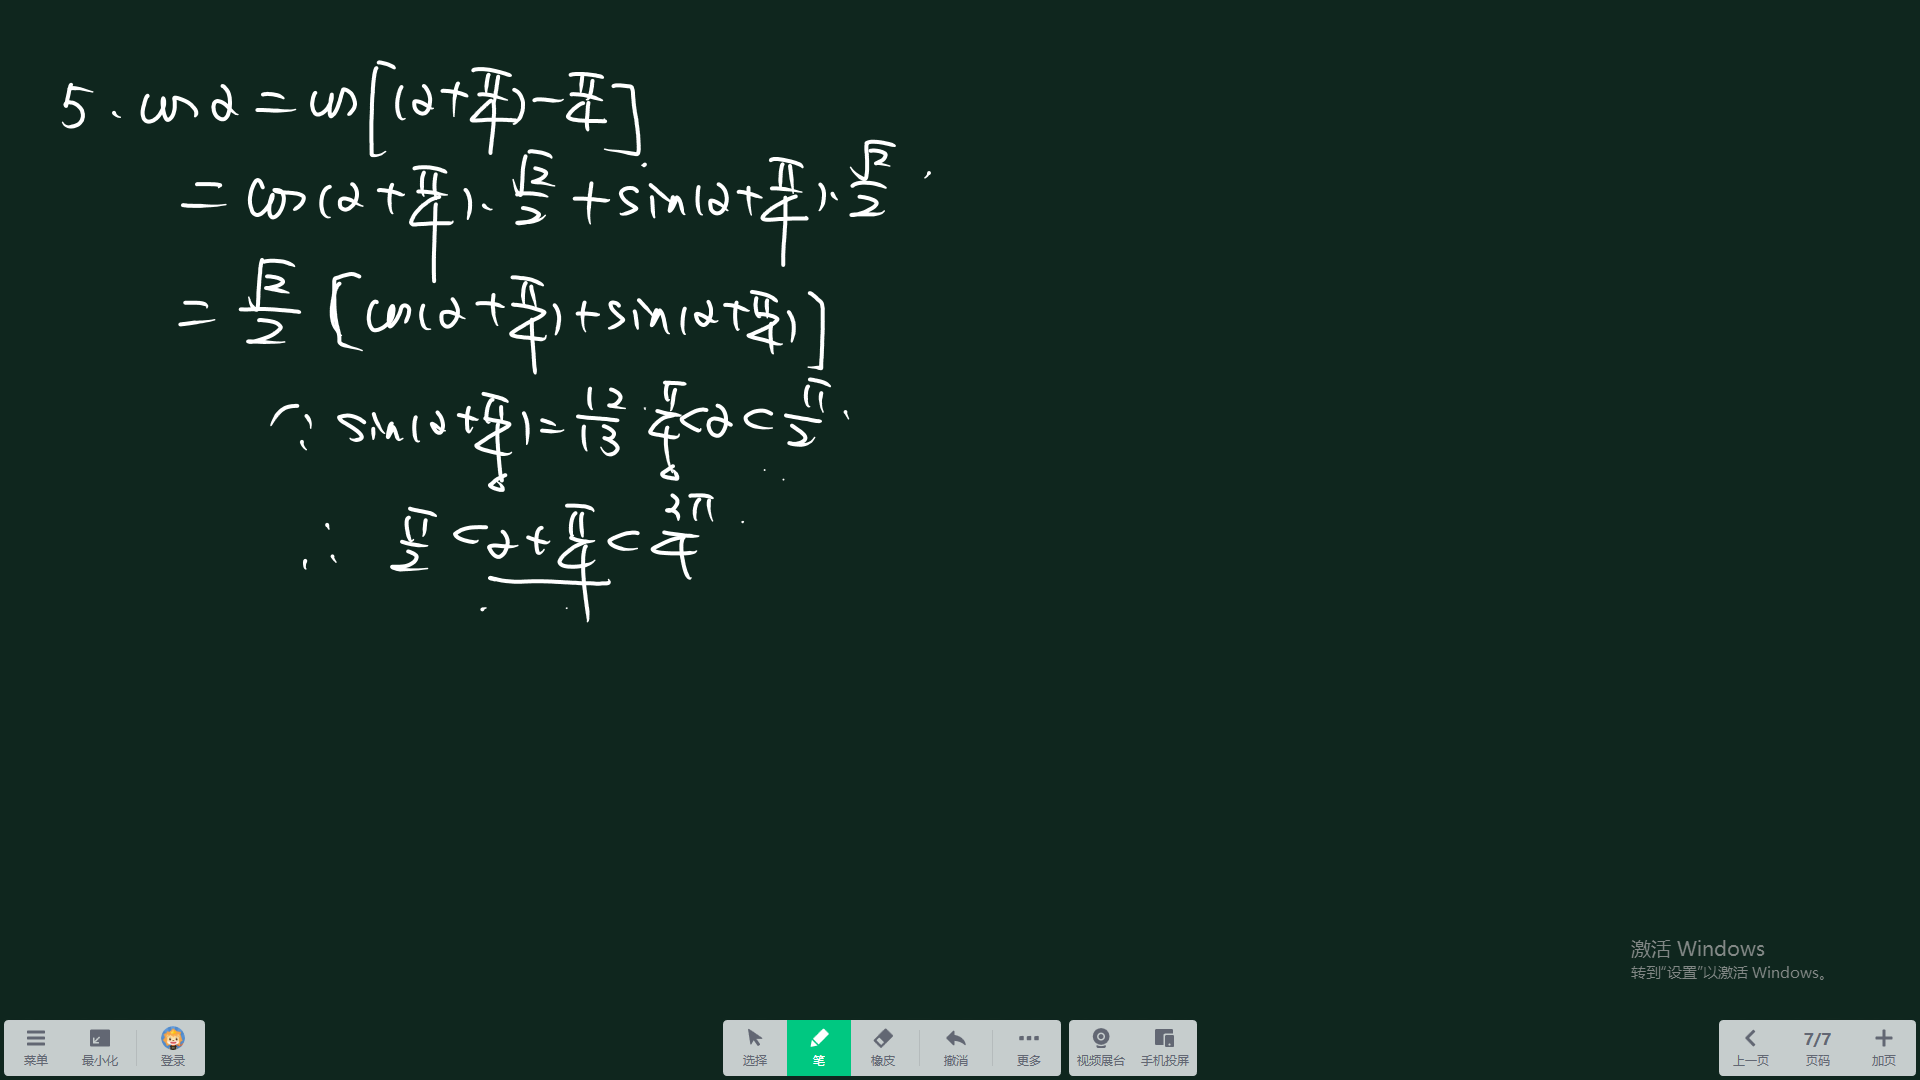 5. cosα = cos[(α+π/4)-π/4]
= cos(α+π/4)·√2/2 + sin(α+π/4)·√2/2
= √2/2 [cos(α+π/4)+sin(α+π/4)]
∵ sin(α+π/4)=12/13 π/4<α<π/2
∴ π/2<α+π/4<3π/4
激活 Windows
转到“设置”以激活 Windows。
菜单 最小化 登录 选择 笔 橡皮 撤消 更多 视频展台 手机投屏 上一页 7/7 页码 加页